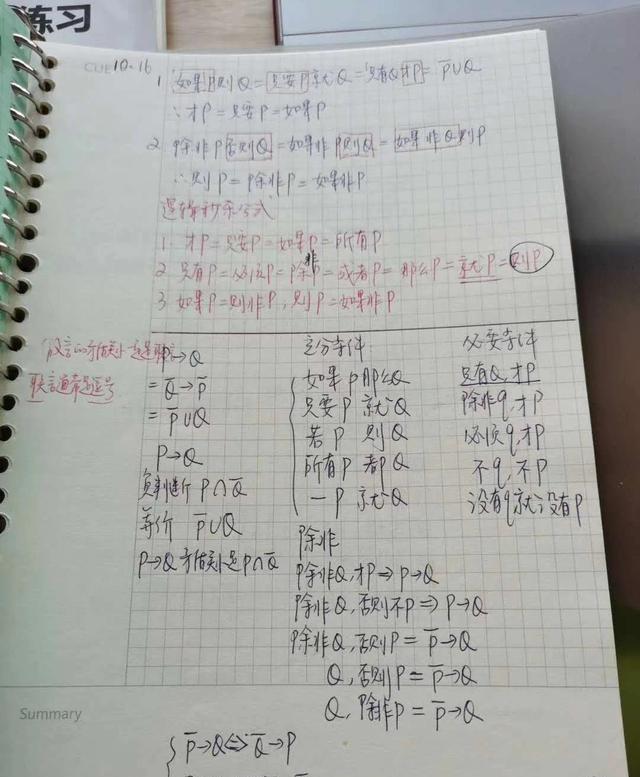 练习
CUE 10-16
1. 如果P则Q=只要P就Q=只有Q才P=P̅∪Q
∴才P=只要P=如果P
2. 除非P否则Q=如果非P则Q=如果非Q则P
∴则P=除非P=如果非P
逻辑秒杀公式
1. 才P=只要P=如果P=所有P
2. 只有P=必须P=除非P=或者P=那么P=就P=则P
3. 如果P=则非P,则P=如果非P
假言的矛盾
联言通常是逗号
P→Q
=Q̅→P̅
=P̅∪Q
P→Q
P∩Q̅
等价 P̅∪Q
P→Q矛盾是P∩Q̅
充分条件
如果P那么Q
只要P 就Q
若P 则Q
所有P 都Q
一P 就Q
必要条件
只有Q,才P
除非q,才P
必须q,才P
不q,不P
没有q就没有P
除非
除非Q,才P⇒P→Q
除非Q,否则不P⇒P→Q
除非Q,否则P=P̅→Q
Q,否则P=P̅→Q
Q,除非P=P̅→Q
Summary
P̅→Q⇔Q̅→P